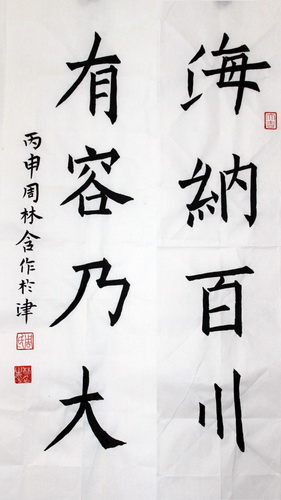 海納百川
有容乃大
丙申周林含作於津